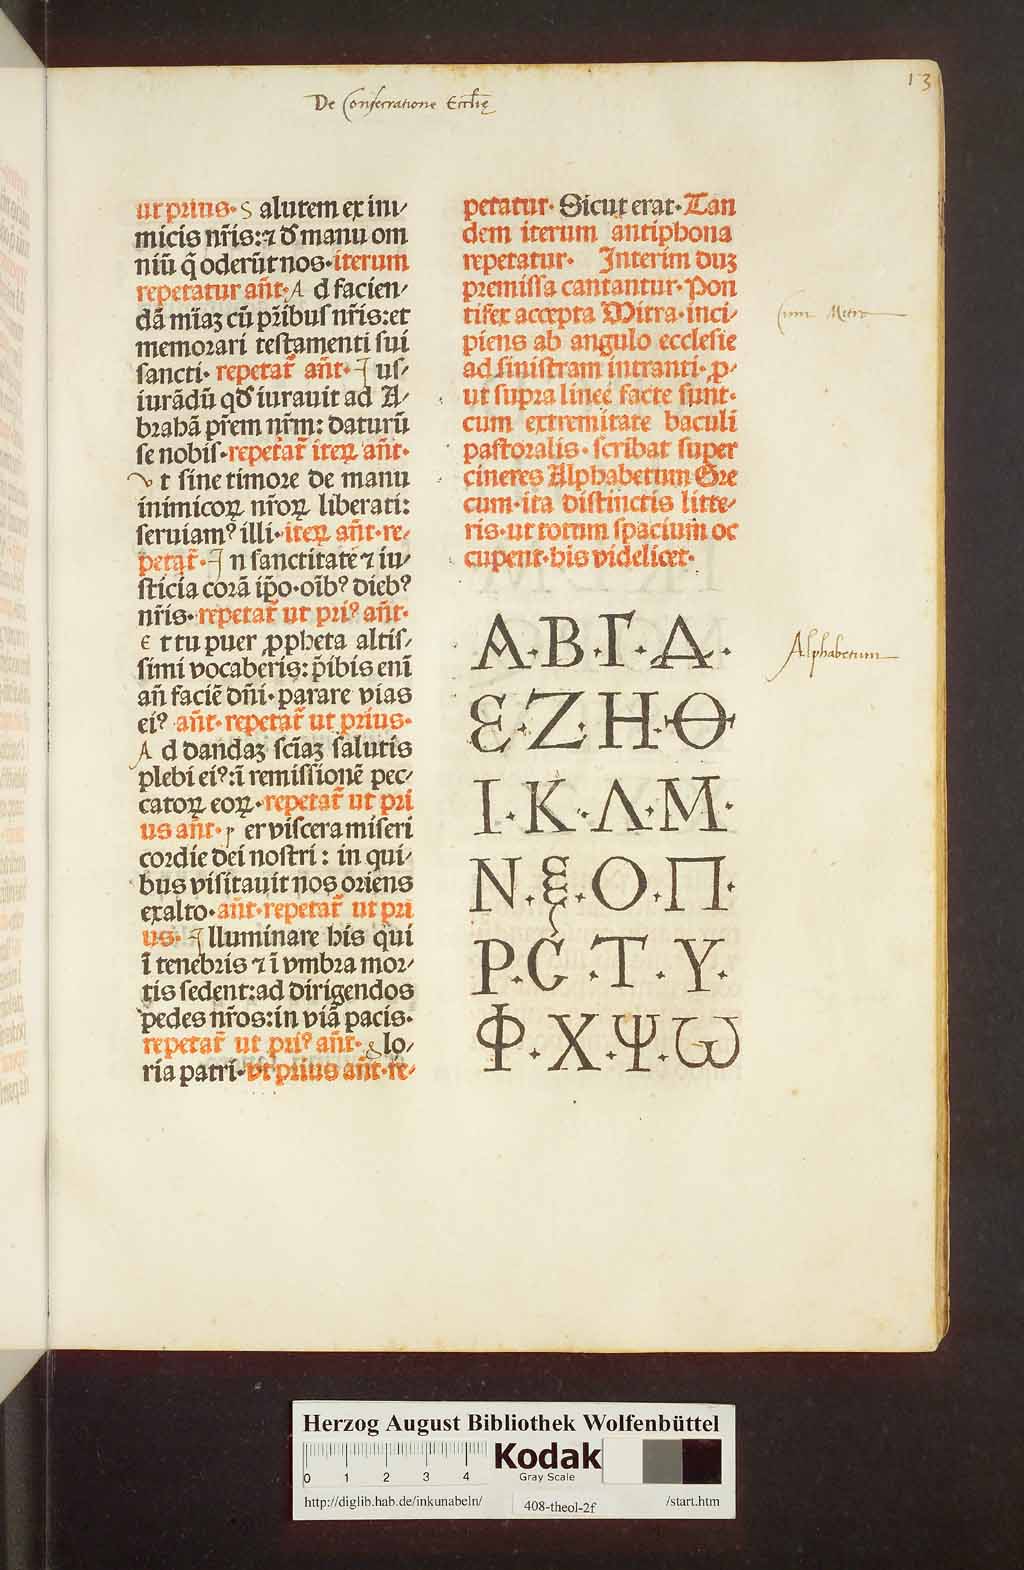 13
De Consecratione Eccl̃ię
ut prius· S alutem ex ini⸗
micis nr̃is:⁊ đ manu om
niũ q̃ oderũt nos·iterum
repetatur añt· A d facien⸗
dã mĩaꝫ cũ pr̃ibus nr̃is:et
memorari testamenti sui
sancti· repetat̃ añt· I us⸗
iurãdũ qđ iurauit ad A⸗
brahã pr̃em nr̃m: daturũ
se nobis·repetat̃ iteꝝ añt·
v t sine timore de manu
inimicoꝝ nr̃oꝝ liberati:
seruiamꝰ illi·iteꝝ añt·re⸗
petat̃· I n sanctitate ⁊ iu⸗
sticia corã ip̃o·oĩbꝰ diebꝰ
nr̃is·repetat̃ ut priꝰ añt·
E t tu puer ꝓpheta altis⸗
simi vocaberis: p̃ibis enĩ
añ faciẽ dñi·parare vias
eiꝰ añt·repetat̃ ut prius·
A d dandaꝫ scĩaꝫ salutis
plebi eiꝰ:ĩ remissionẽ pec⸗
catoꝝ eoꝝ·repetat̃ ut pri
us añt· P er viscera miseri
cordie dei nostri: in qui⸗
bus visitauit nos oriens
exalto·añt·repetat̃ ut pri
us· I lluminare his qui
ĩ tenebris ⁊ ĩ vmbra mor⸗
tis sedent:ad dirigendos
pedes nr̃os:in viã pacis·
repetat̃ ut priꝰ añt· G lo⸗
ria patri·vt prius añt·re⸗
petatur· Sicut erat·Tan
dem iterum antiphona
repetatur· Interim duꝫ
premissa cantantur·Pon
tifex accepta Mitra·inci⸗
piens ab angulo ecclesie
ad sinistram intranti·ꝓ⸗
ut supra lineę facte sunt·
cum extremitate baculi
pastoralis·scribat super
cineres Alphabetum Gre
cum·ita distinctis litte⸗
ris·ut totum spacium oc
cupent·his videlicet·
Α·Β·Γ·Δ·
Ε·Ζ·Η·Θ
Ι·Κ·Λ·Μ·
Ν·ξ·Ο·Π·
Ρ·Ϛ·Τ·Υ·
Φ·Χ·Ψ·ω
Cum Mitra
Alphabetum
Herzog August Bibliothek Wolfenbüttel
0 1 2 3 4
Kodak
Gray Scale
http://diglib.hab.de/inkunabeln/ 408-theol-2f /start.htm